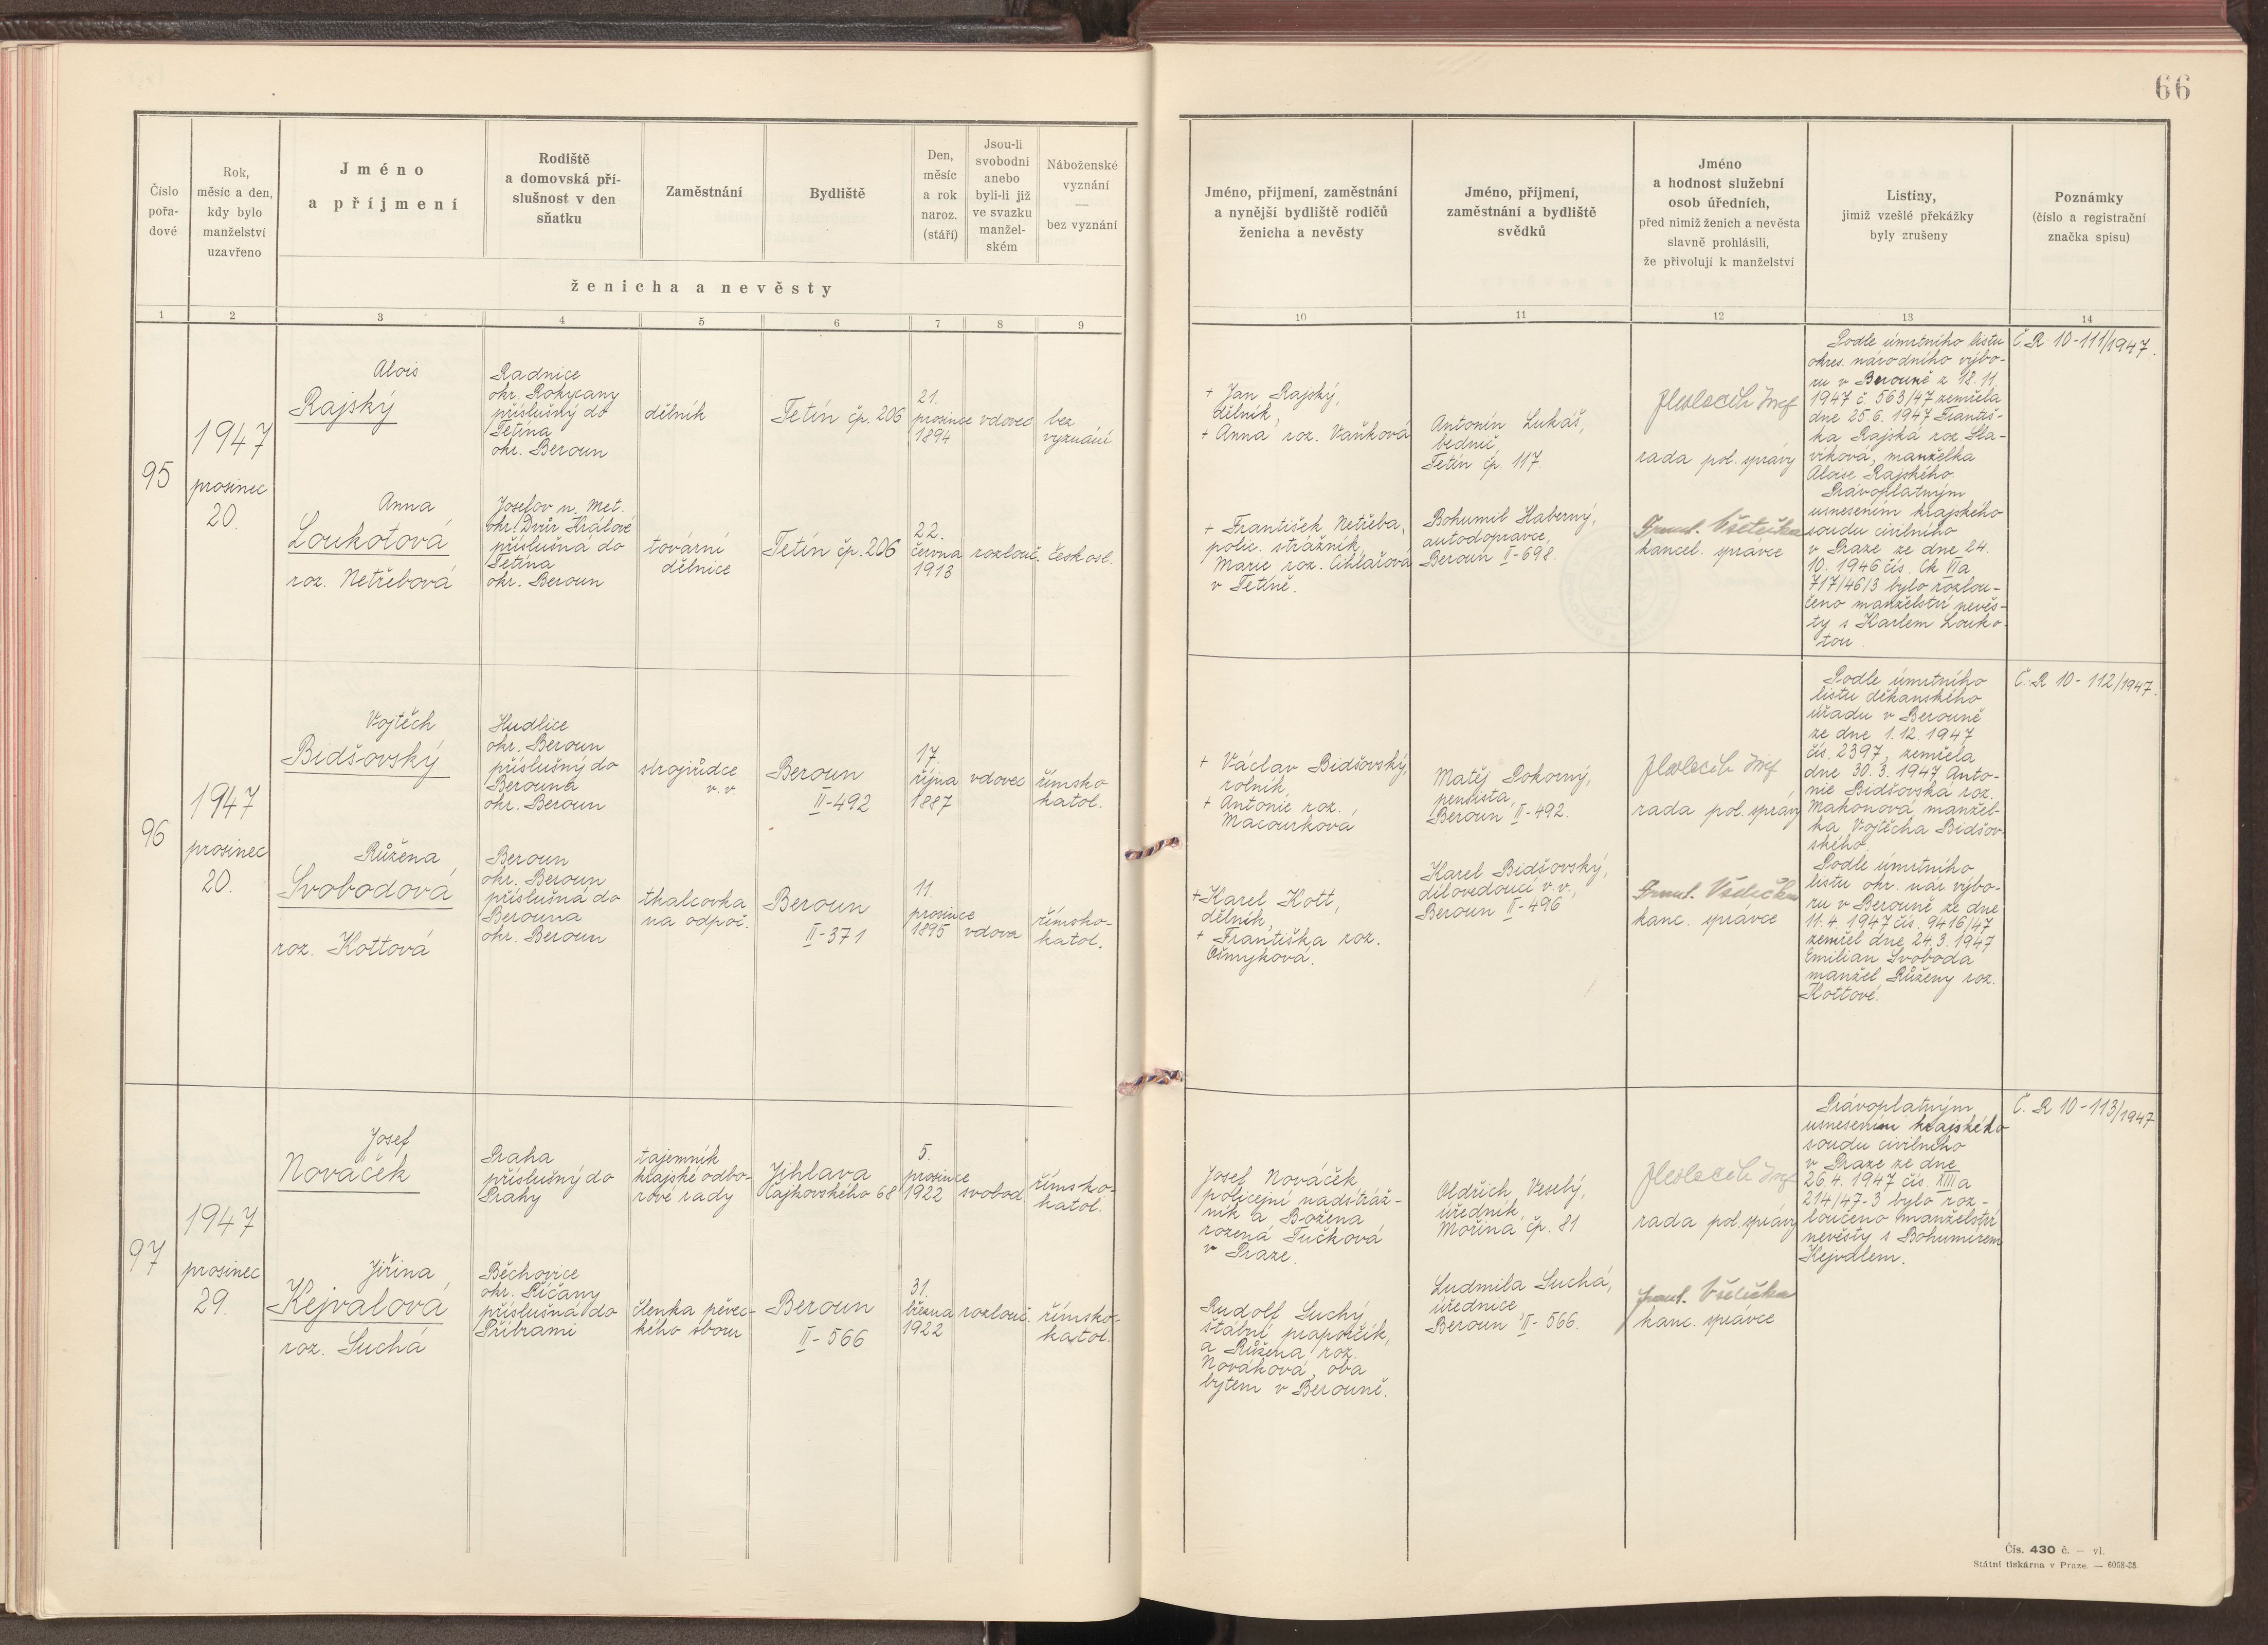 66
Číslo
pořa-
dové
Rok,
měsíc a den,
kdy bylo
manželství
uzavřeno
Jméno
a příjmení
Rodiště
a domovská pří-
slušnost v den
sňatku
Zaměstnání
Bydliště
Den,
měsíc
a rok
naroz.
(stáří)
Jsou-li
svobodni
anebo
byli-li již
ve svazku
manžel-
ském
Náboženské
vyznání
—
bez vyznání
ženicha a nevěsty
Jméno, příjmení, zaměstnání
a nynější bydliště rodičů
ženicha a nevěsty
Jméno, příjmení,
zaměstnání a bydliště
svědků
Jméno
a hodnost služební
osob úředních,
před nimiž ženich a nevěsta
slavně prohlásili,
že přivolují k manželství
Listiny,
jimiž vzešlé překážky
byly zrušeny
Poznámky
(číslo a registrační
značka spisu)
1 2 3 4 5 6 7 8 9 10 11 12 13 14
95
1947
prosinec
20.
Alois
Rajský
Radnice
okr. Rokycany
příslušný do
Tetína
okr. Beroun
dělník
Tetín čp. 206
21.
prosince
1894
vdovec
bez
vyznání
Anna
Loukotová
roz. Netřebová
Josefov n. Met.
okr. Dvůr Králové
příslušná do
Tetína
okr. Beroun
tovární
dělnice
Tetín čp. 206
22.
června
1913
rozlouč.
českosl.
+ Jan Rajský,
dělník,
+ Anna roz. Vaňková
+ František Netřeba,
polic. strážník,
Marie roz. Cihlařová
v Tetíně.
Antonín Lukáš,
bednič,
Tetín čp. 117.
Bohumil Haberný,
autodopravce,
Beroun II-698.
Josef
rada pol. správy
Frant. Všetečka
kancel. správce
Podle úmrtního listu
okres. národního výbo-
ru v Berouně z 18. 11.
1947 č. 563/47 zemřela
dne 25. 6. 1947 Františ-
ka Rajská roz. Sla-
víková, manželka
Aloise Rajského.
Právoplatným
usnesením krajského
soudu civilního
v Praze ze dne 24.
10. 1946 čís. Ck VIa
717/46/3 bylo rozlou-
čeno manželství nevěs-
ty s Karlem Louko-
tou.
Č. R 10-111/1947.
96
1947
prosinec
20.
Vojtěch
Bidšovský
Hudlice
okr. Beroun
příslušný do
Berouna
okr. Beroun
strojvůdce
v. v.
Beroun
II-492
17.
října
1887
vdovec
římsko
katol.
Růžena
Svobodová
roz. Kottová
Beroun
okr. Beroun
příslušná do
Berouna
okr. Beroun
tkalcovka
na odpoč.
Beroun
II-371
11.
prosince
1895
vdova
římsko-
katol.
+ Václav Bidšovský,
rolník,
+ Antonie roz.
Macourková
+ Karel Kott,
dělník,
+ Františka roz.
Ošmyková.
Matěj Pokorný,
pensista,
Beroun II-492.
Karel Bidšovský,
dílovedoucí v. v.,
Beroun II-496
Josef
rada pol. správy
Frant. Všetečka
kanc. správce
Podle úmrtního
listu děkanského
úřadu v Berouně
ze dne 1. 12. 1947
čís. 2397, zemřela
dne 30. 3. 1947 Anto-
nie Bidšovská roz.
Mahonová manžel-
ka Vojtěcha Bidšov-
ského.
Podle úmrtního
listu okr. nár. výbo-
ru v Berouně ze dne
11. 4. 1947 čís. 9416/47
zemřel dne 24. 3. 1947
Emilian Svoboda
manžel Růženy roz.
Kottové.
Č. R 10-112/1947.
97
1947
prosinec
29.
Josef
Nováček
Praha
příslušný do
Prahy
tajemník
krajské odbo-
rové rady
Jihlava
Čajkovského 68
5.
prosince
1922
svobod.
římsko-
katol.
Jiřina
Kejvalová
roz. Suchá
Běchovice
okr. Říčany
příslušná do
Příbrami
členka pěvec-
kého sboru
Beroun
II-566
31.
března
1922
rozlouč.
římsko-
katol.
Josef Nováček
policejní nadstráž-
ník a Božena
rozená Tučková
v Praze.
Rudolf Suchý,
štábní praporčík,
a Růžena roz.
Nováková, oba
bytem v Berouně.
Oldřich Veselý,
úředník,
Mořina čp. 81
Ludmila Suchá,
úřednice
Beroun II-566.
Josef
rada pol. správy
Frant. Všetečka
kanc. správce
Právoplatným
usnesením krajského
soudu civilního
v Praze ze dne
26. 4. 1947 čís. XIIIa
214/47-3 bylo roz-
loučeno manželství
nevěsty s Bohumírem
Kejvalem.
Č. R 10-113/1947
Čís. 430 č. — vl.
Státní tiskárna v Praze. — 6068-38.